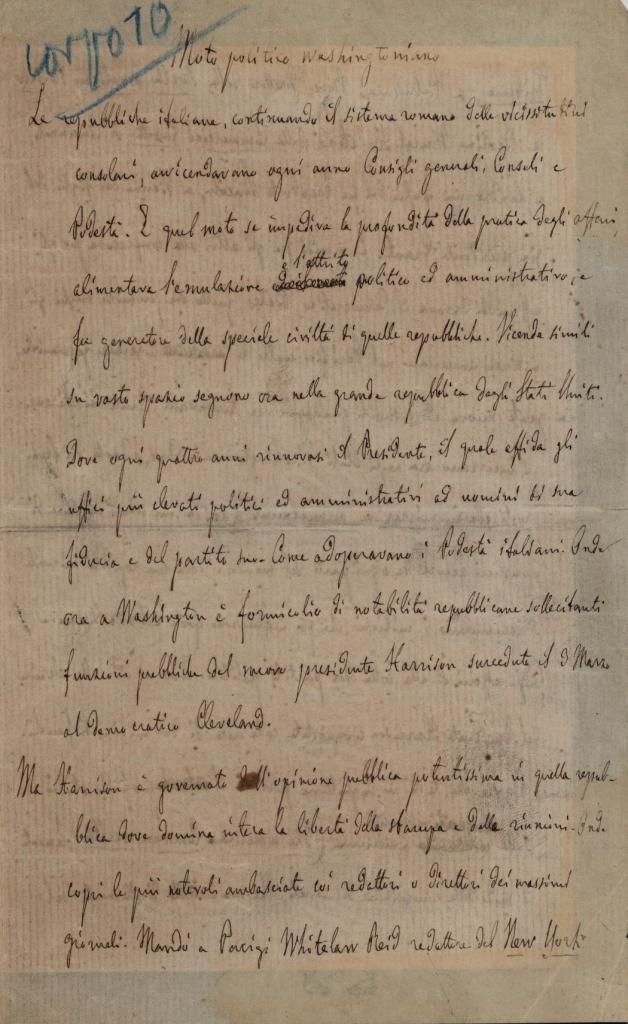 corpo 10
Moto politico washingtoniano
Le repubbliche italiane, continuando il sistema romano delle vicissitudini
consolari, avvicendavano ogni anno Consigli generali, Consoli e
Podestà. E quel moto se impediva la profondità della pratica degli affari,
alimentava l'emulazione e l'attrito politico ed amministrativo, e
fu generatore della speciale civiltà di quelle repubbliche. Vicende simili
su vasto spazio seguono ora nella grande repubblica degli Stati Uniti.
Dove ogni quattro anni rinnovasi il Presidente, il quale affida gli
uffici più elevati politici ed amministrativi ad uomini di sua
fiducia e del partito suo. Come adoperavano i Podestà italiani. Onde
ora a Washington è formicolio di notabilità repubblicane sollecitanti
funzioni pubbliche del nuovo presidente Harrison succeduto il 3 Marzo
al democratico Cleveland.
Ma Harrison è governato dall'opinione pubblica potentissima in quella repub-
blica dove domina intera la libertà della stampa e delle riunioni. Onde
coprì le più notevoli ambasciate coi redattori o direttori dei massimi
giornali. Mandò a Parigi Whitelaw Reid redattore del New York